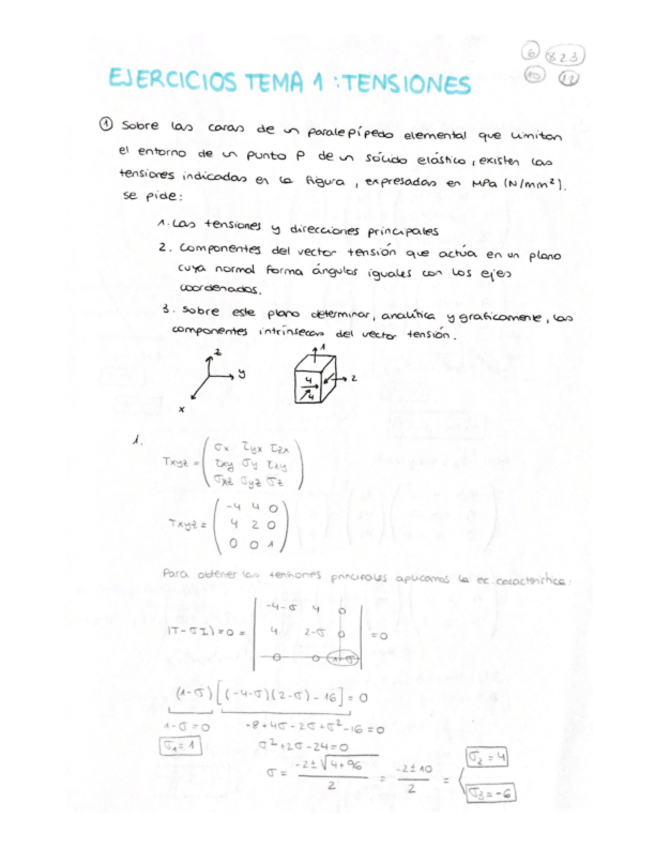 6 8 23
10 12
EJERCICIOS TEMA 1 : TENSIONES
① Sobre las caras de un paralepípedo elemental que limitan
el entorno de un punto P de un sólido elástico, existen las
tensiones indicadas en la figura, expresadas en MPa (N/mm²).
se pide:
1. Las tensiones y direcciones principales
2. Componentes del vector tensión que actúa en un plano
cuya normal forma ángulos iguales con los ejes
coordenados.
3. Sobre este plano determinar, analítica y gráficamente, las
componentes intrínsecas del vector tensión.
z y x
1 2 4 4
1.
Txyz = ( σx τyx τzx
τxy σy τzy
σxz σyz σz )
Txyz = ( -4 4 0
4 2 0
0 0 1 )
Para obtener las tensiones principales aplicamos la ec. característica:
|T-σI| = 0 = | -4-σ 4 0
4 2-σ 0
0 0 1-σ | = 0
(1-σ) [(-4-σ)(2-σ) - 16] = 0
1-σ = 0 -8+4σ-2σ+σ²-16=0
σ1 = 1 σ²+2σ-24=0
σ = -2±√4+96 / 2 = -2±10 / 2 = σ2 = 4
σ3 = -6